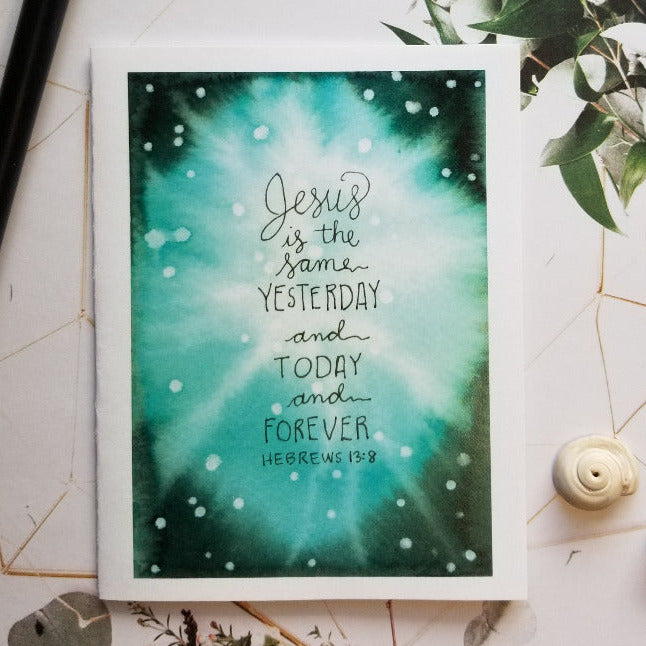 Jesus
is the
same
YESTERDAY
and
TODAY
and
FOREVER
HEBREWS 13:8